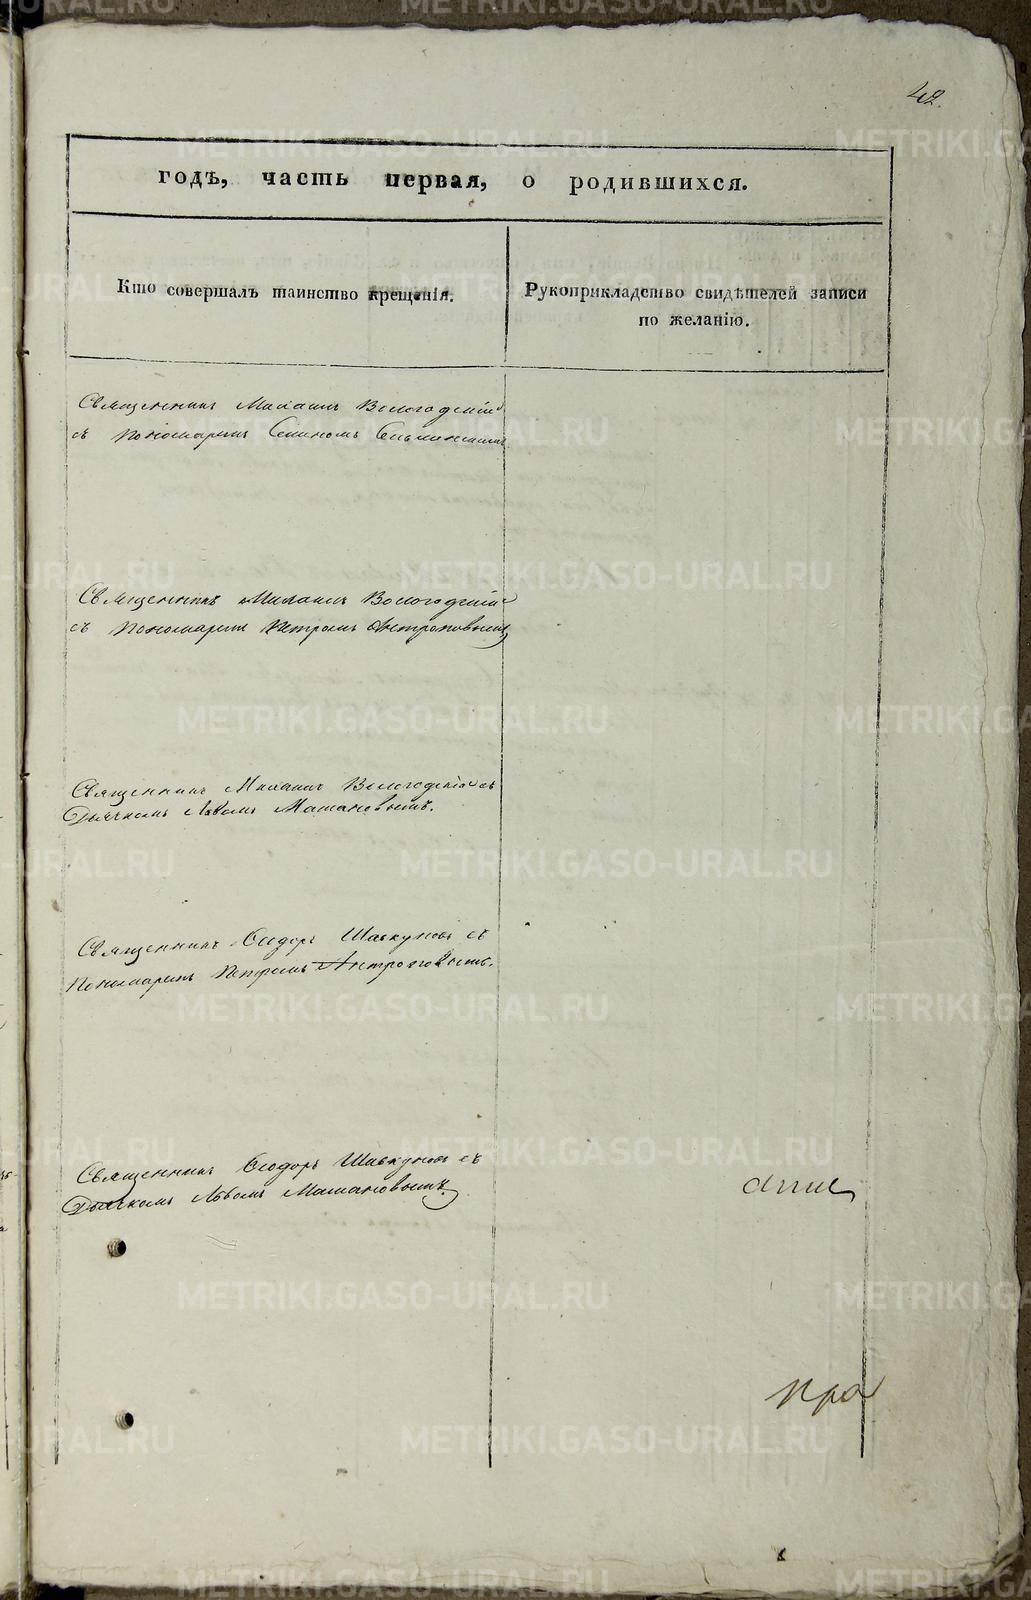 42.
годъ, часть первая, о родившихся.
Кто совершалъ таинство крещенія.
Рукоприкладство свидѣтелей записи
по желанію.
Священникъ Михаилъ Вологодскій
съ Пономаремъ
Священникъ Михаилъ Вологодскій
съ Пономаремъ Петромъ Антроповымъ
Священникъ Михаилъ Вологодскій съ
Дьячкомъ Львомъ Матановымъ.
Священникъ Ѳеодоръ Шавкуновъ съ
Пономаремъ Петромъ Антроповымъ.
Священникъ Ѳеодоръ Шавкуновъ съ
Дьячкомъ Львомъ Матановымъ.
пра
METRIKI.GASO-URAL.RU